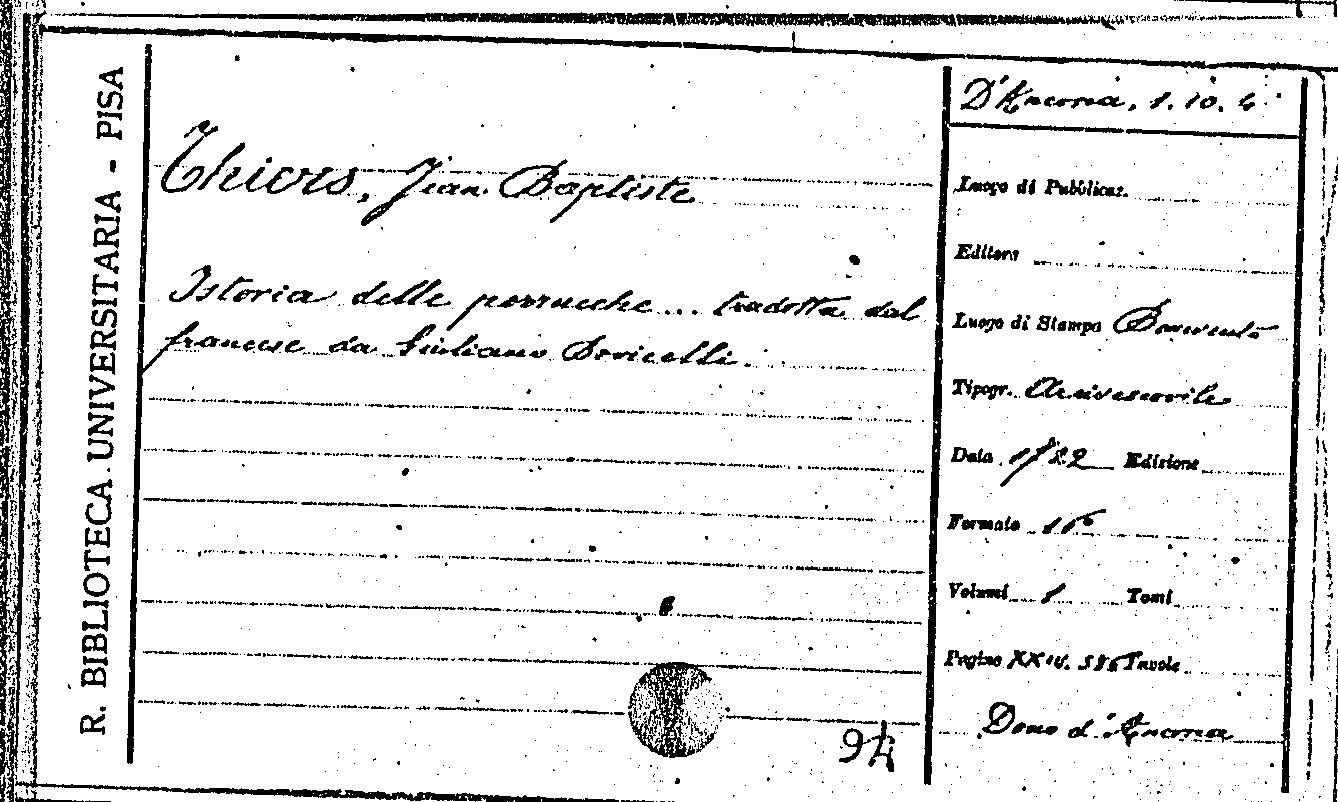 R. BIBLIOTECA UNIVERSITARIA - PISA
D'Ancona, 1. 10. 6
Thiers, Jean Baptiste
Istoria delle perrucche ... tradotta dal
francese da Giuliano Bovicelli.
Luogo di Pubblicaz.
Editore
Luogo di Stampa Benevento
Tipogr. Arcivescovile
Data 1722 Edizione
Formato 16°
Volumi 1 Tomi
Pagine XXIV. 386 Tavole
Dono d'Ancona